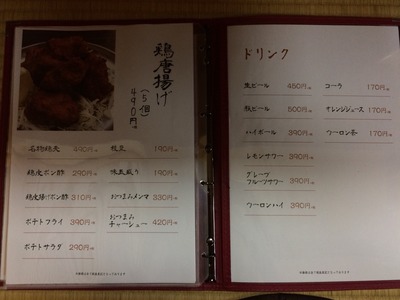 鶏唐揚げ
(5個)
490円
名物鶏売 490円
枝豆 190円
鶏皮ポン酢 290円
味玉盛り 190円
鶏皮揚げポン酢 310円
おつまみメンマ 330円
ポテトフライ 390円
おつまみ
チャーシュー 420円
ポテトサラダ 290円
ドリンク
生ビール 450円
コーラ 170円
瓶ビール 500円
オレンジジュース 170円
ハイボール 390円
ウーロン茶 170円
レモンサワー 390円
グレープ
フルーツサワー 390円
ウーロンハイ 390円